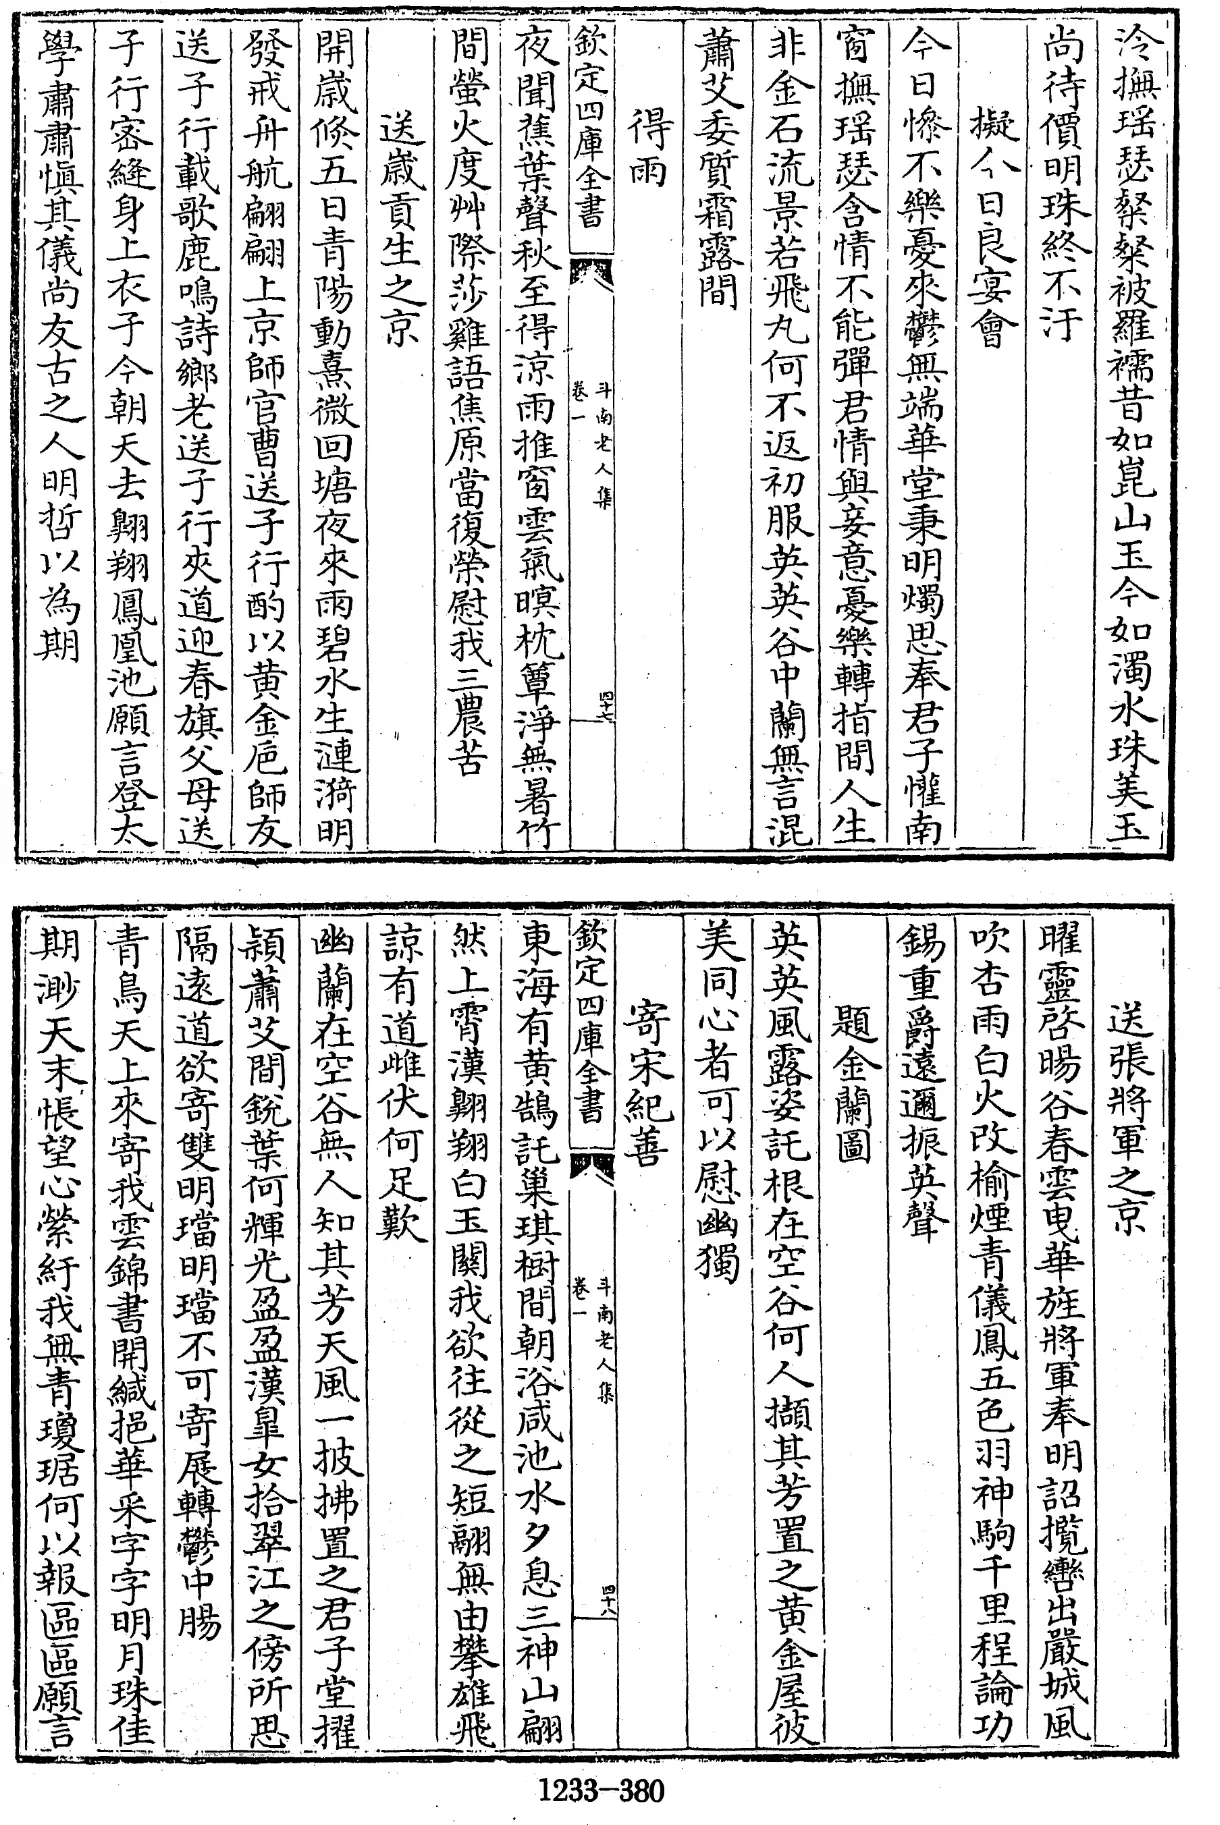 泠撫瑤瑟粲粲被羅襦昔如崑山玉今如濁水珠美玉
尚待價明珠終不汙
擬今日良宴會
今日慘不樂憂來鬱無端華堂秉明燭思奉君子懽南
窗撫瑶瑟含情不能彈君情與妾意憂樂轉指間人生
非金石流景若飛丸何不返初服英英谷中蘭無言混
蕭艾委質霜露間
得雨
欽定四庫全書
斗南老人集
卷一
四十七
夜聞蕉葉聲秋至得涼雨推窗雲氣暝枕簟淨無暑竹
間螢火度艸際莎雞語焦原當復榮慰我三農苦
送歳貢生之京
開歳倐五日青陽動熹微回塘夜來雨碧水生漣漪明
發戒舟航翩翩上京師官曹送子行酌以黄金巵師友
送子行載歌鹿鳴詩鄉老送子行夾道迎春旗父母送
子行宻縫身上衣子今朝天去翺翔鳳凰池願言登太
學肅肅慎其儀尚友古之人明哲以為期
送張將軍之京
曜靈啓暘谷春雲曳華旌將軍奉明詔攬轡出嚴城風
吹杏雨白火改榆煙青儀鳳五色羽神駒千里程論功
錫重爵遠邇振英聲
題金蘭圖
英英風露姿託根在空谷何人擷其芳置之黄金屋彼
美同心者可以慰幽獨
寄宋紀善
欽定四庫全書
斗南老人集
卷一
四十八
東海有黄鵠託巢琪樹間朝浴咸池水夕息三神山翩
然上霄漢翺翔白玉闕我欲往從之短翮無由攀雄飛
諒有道雌伏何足歎
幽蘭在空谷無人知其芳天風一披拂置之君子堂擢
穎蕭艾間銳葉何輝光盈盈漢皐女拾翠江之傍所思
隔遠道欲寄雙明璫明璫不可寄展轉鬱中腸
青鳥天上來寄我雲錦書開緘挹華采字字明月珠佳
期渺天末悵望心縈紆我無青瓊琚何以報區區願言
1233-380